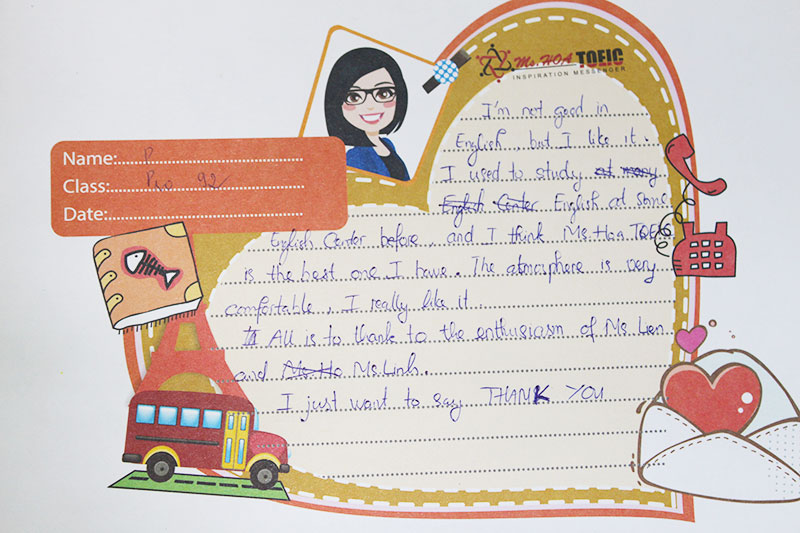 Ms. HOA TOEIC
INSPIRATION MESSENGER
Name: P
Class: Pro 92
Date:
I'm not good in
English, but I like it.
I used to study at many
English Center English at some
English Center before, and I think Ms. Hoa TOEIC
is the best one I have. The atmosphere is very
comfortable, I really like it.
All is to thank to the enthusiasm of Ms. Lien
and Ms. Ho Ms. Linh.
I just want to say THANK YOU